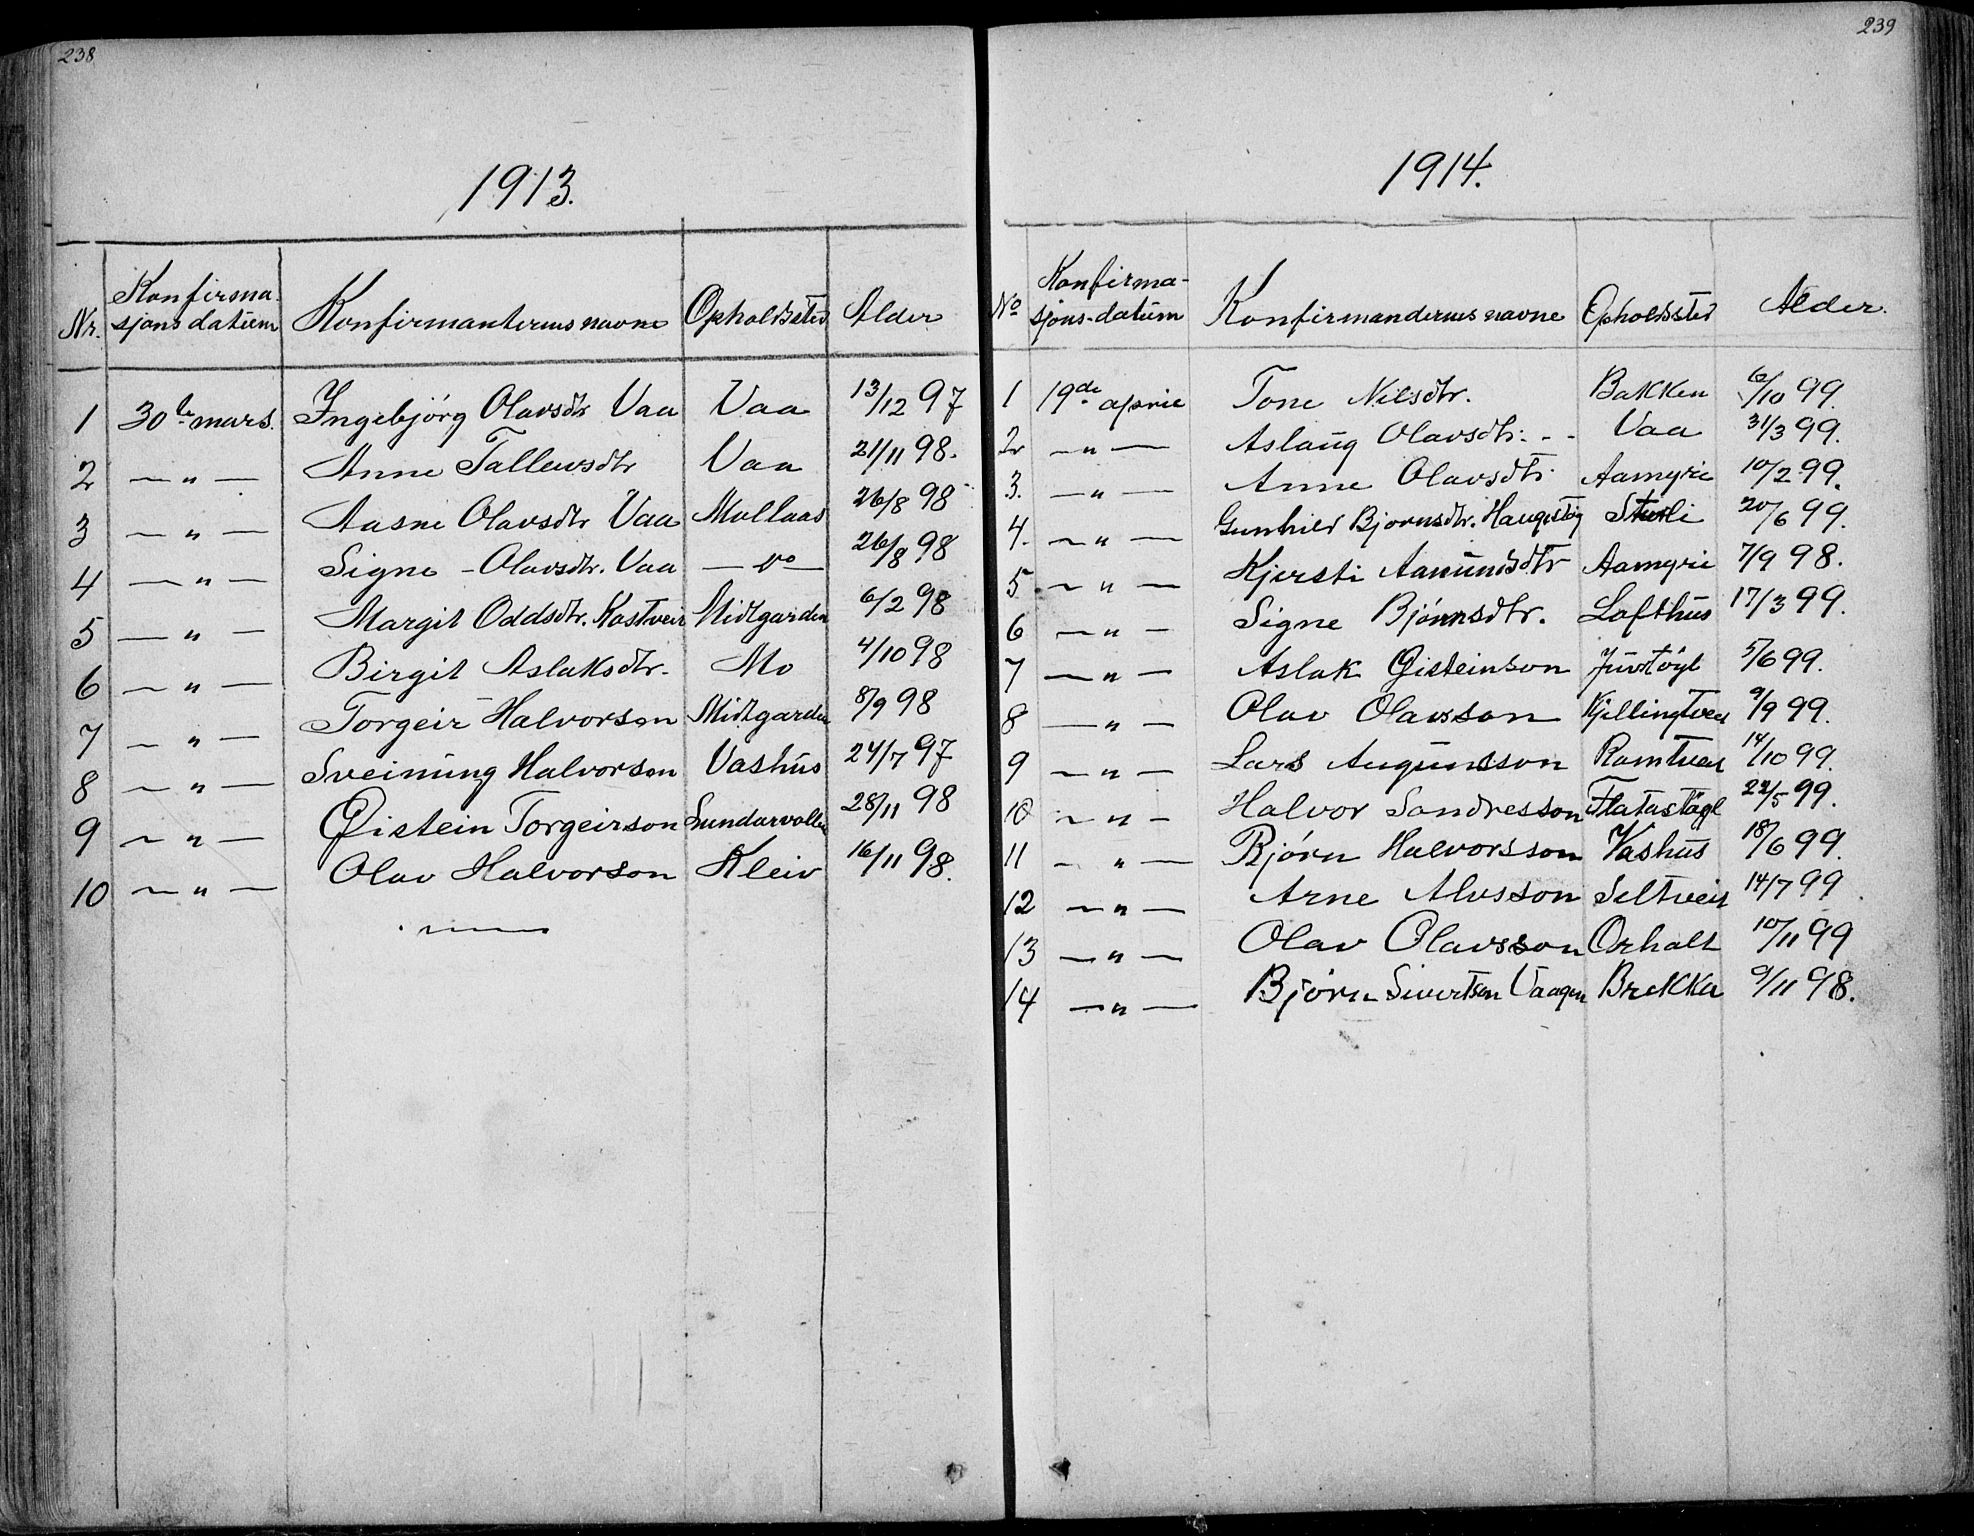 238
1913.
Nr. Konfirma- sjons datum Konfirmanternes navne Opholdsted Alder
1 30te mars. Ingebjörg Olavsdtr Vaa Vaa 13/12 97
2 — " — Anne Tallevsdtr Vaa 21/11 98.
3 — " — Aasne Olavsdtr Vaa Mollaas 26/8 98
4 — " — Signe - Olavsdtr. Vaa — do — 26/8 98
5 — " — Margit Oddsdtr. Kostveit Midtgarden 6/2 98
6 — " — Birgit Aslaksdtr. Mo 4/10 98
7 — " — Torgeir Halvorson Midtgarden 8/9 98
8 — " — Sveinung Halvorson Vashus 24/7 97
9 — " — Øistein Torgeirson 28/11 98
10 — " — Olav Halvorson Kleiv 16/11 98.
239
1914.
No Konfirma- sjons-datum Konfirmandernes navne Opholdssted Alder.
1 19de april Tone Nilsdtr. Bakken 6/10 99.
2 — " — Aslaug Olavsdtr. - - Vaa 31/3 99.
3. — " — Anne Olavsdtr Aamyri 10/2 99.
4. — " — Gunhild Bjornsdtr. Haugstøg 20/6 99.
5 — " — Kjersti Aamundsdtr Aamyri 7/9 98.
6 — " — Signe Bjönnsdtr. Lofthus 17/3 99.
7 — " — Aslak Øisteinson Juvstøyl 5/6 99.
8 — " — Olav Olavsson Kjellingtveit 9/9 99.
9 — " — Lars Augunsson Romtveit 14/10 99.
10 — " — Halvor Sondresson Flatastøyl 22/5 99.
11 — " — Bjørn Halvorsson Vashus 18/6 99.
12 — " — Arne Alvsson Seltveit 14/7 99
13 — " — Olav Olavsson Orholt 10/11 99
14 — " — Bjørn Sivertsen Vaagen Brekka 9/11 98.